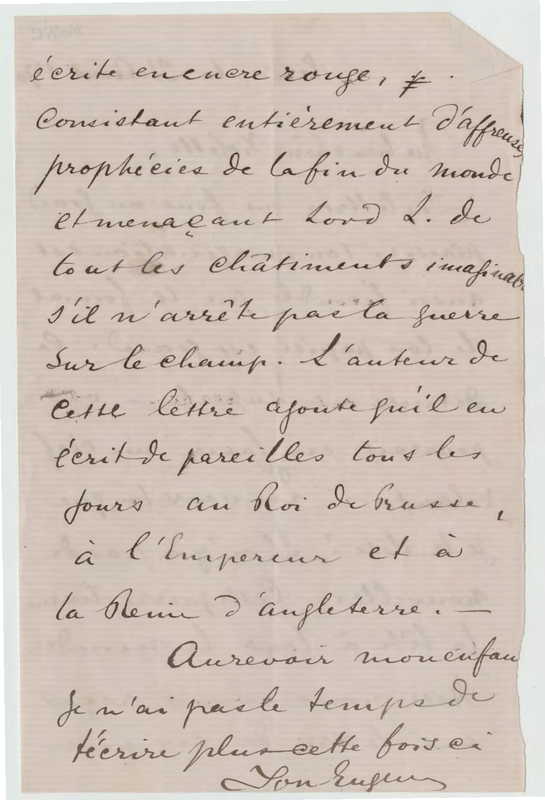 écrite en encre rouge,
Consistant entièrement d'affreuses
prophécies de la fin du monde
et menaçant Lord L. de
tout les châtiments imaginab
s'il n'arrête pas la guerre
sur le champ. L'auteur de
cette lettre ajoute qu'il en
écrit de pareilles tous les
jours au Roi de Prusse,
à l'Empereur et à
la Reine d'angleterre. —
Au revoir mon enfan
Je n'ai pas le temps de
t'écrire plus cette fois ci
Ton Eugen